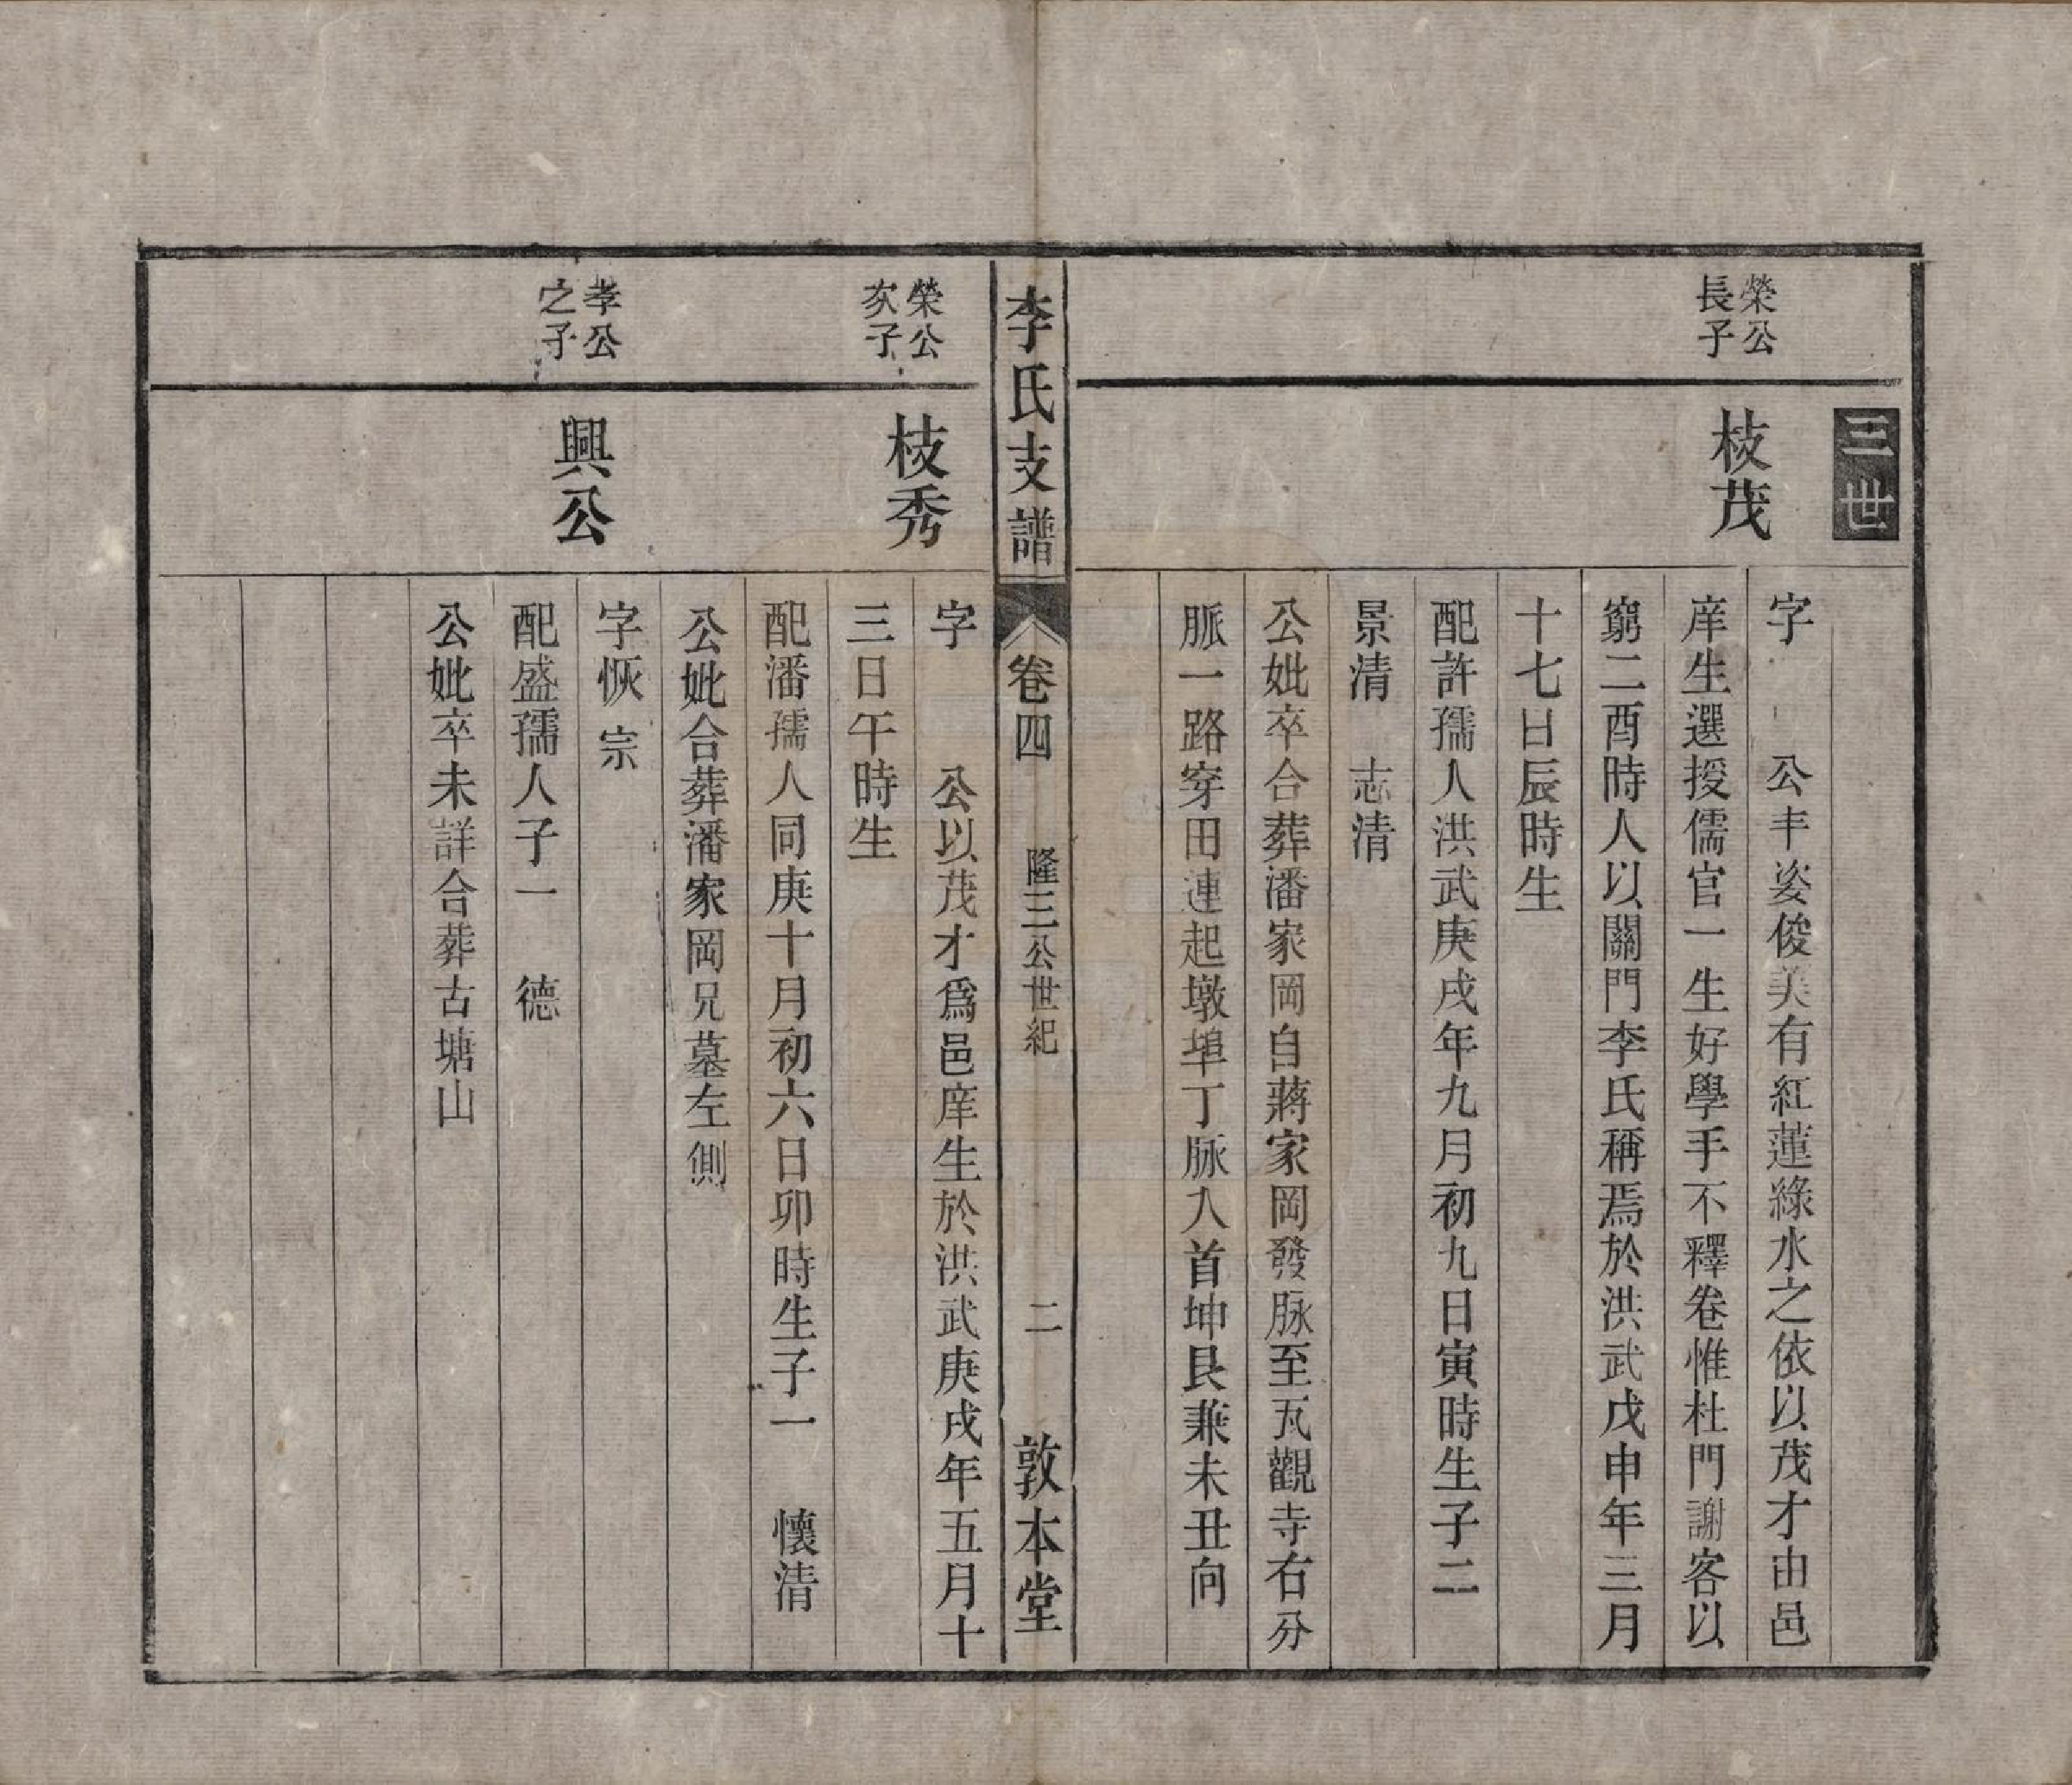 三世
榮公
長子
枝茂
字　公丰姿俊美有紅蓮綠水之依以茂才由邑
庠生選授儒官一生好學手不釋卷惟杜門謝客以
窮二酉時人以關門李氏稱焉於洪武戊申年三月
十七日辰時生
配許孺人洪武庚戌年九月初九日寅時生子二
景清　志清
公妣卒合葬潘家岡自蔣家岡發脉至瓦觀寺右分
脈一路穿田連起墩埠丁脉入首坤艮兼未丑向
李氏支譜　卷四　隆三公世紀　二　敦本堂
榮公
次子
枝秀
字　公以茂才爲邑庠生於洪武庚戌年五月十
三日午時生
配潘孺人同庚十月初六日卯時生子一　懷清
公妣合葬潘家岡兄墓左側
孝公
之子
興公
字恢宗
配盛孺人子一　德
公妣卒未詳合葬古塘山